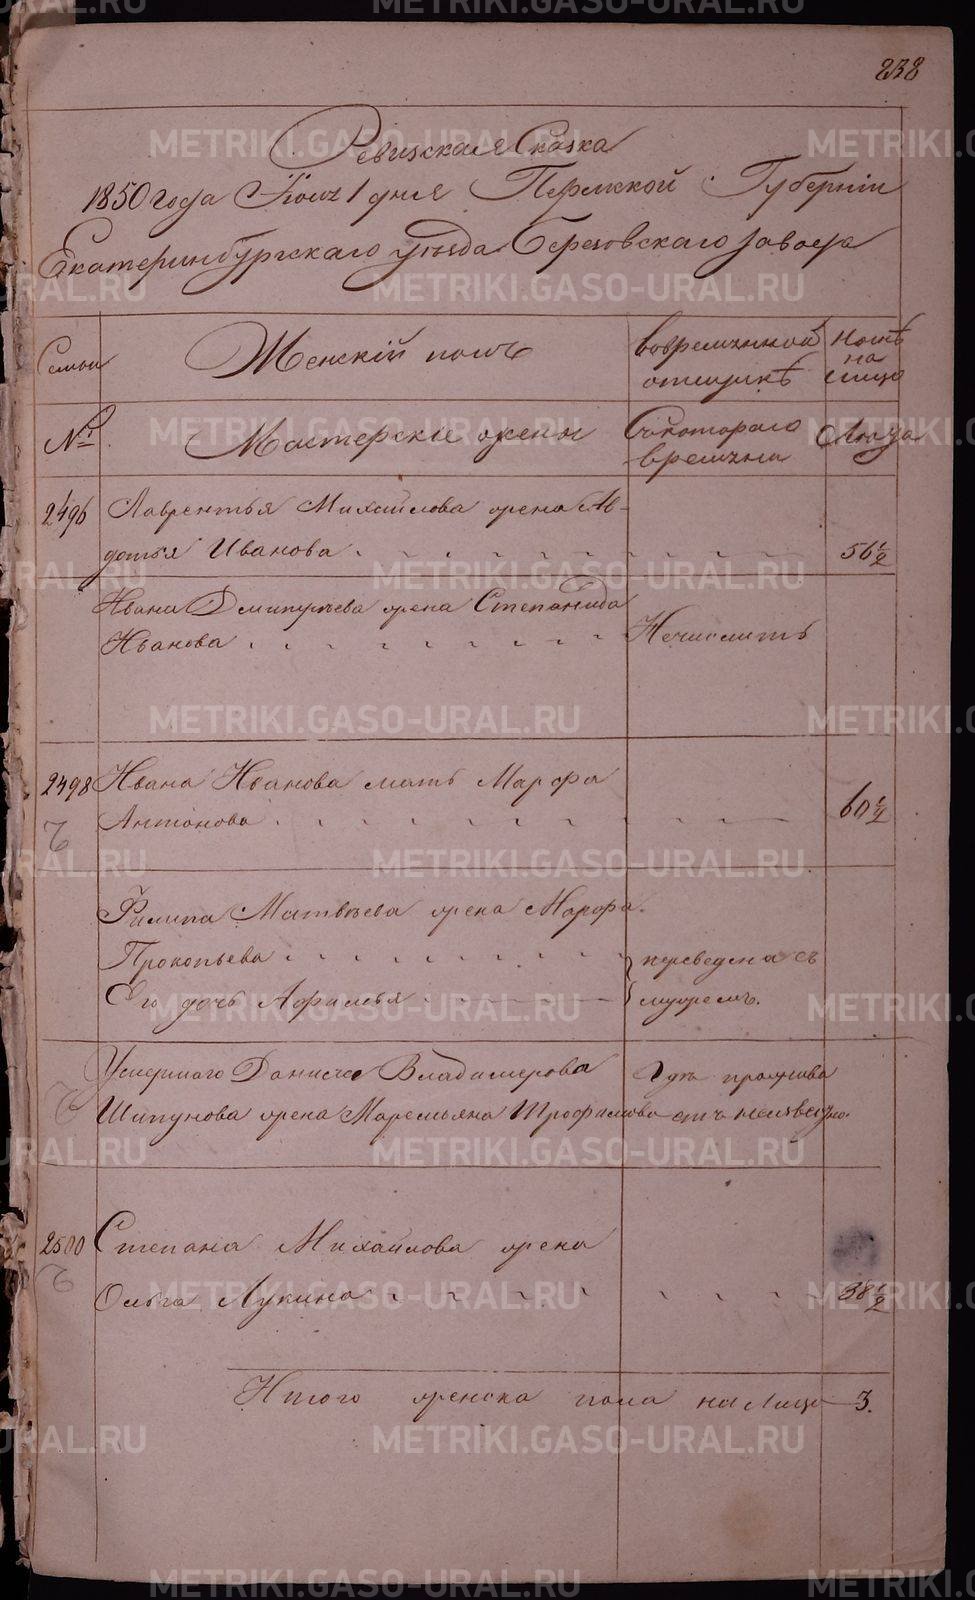 838
Ревизская Сказка
1850 года Іюля 1 дня Пермской Губерніи
Екатеринбургскаго уѣзда Березовскаго завода
Семьи
Женскій полъ
вовременной отлучкѣ
Ныне на лицо
№
Мастерскіе жены
Съкотораго времени
Лѣта
2496 Лаврентья Михайлова жена Ав-
дотья Иванова 56 1/2
Ивана Дмитріева жена Степанида
Иванова Нечислитъ
2498 Ивана Иванова мать Марфа
Антонова 60 1/2
Филипа Матвѣева жена Марфа
Прокопьева переведена съ
Его дочь Афимья мужемъ.
Умершаго Данила Владимерова Гдѣ прожива
Шипунова жена Маремьяна Трофимова етъ неизвестно.
2500 Степана Михайлова жена
Ольга Лукина 38 1/2
Итого женска пола на лицо 3.
METRIKI.GASO-URAL.RU